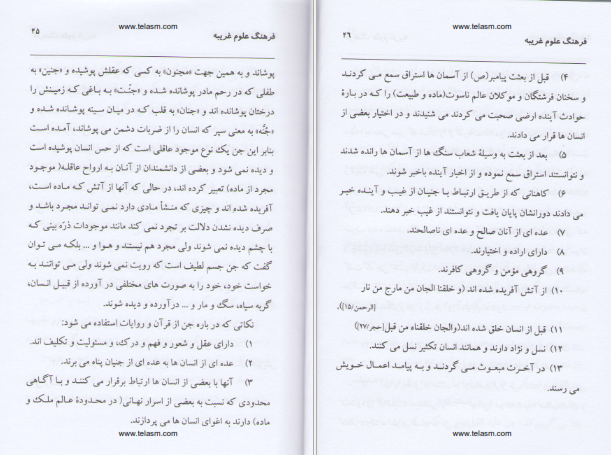 www.telasm.com
۲۵
فرهنگ علوم غریبه
پوشاند و به همین جهت «مجنون» به کسی که عقلش پوشیده و «جنین» به
طفلی که در رحم مادر پوشانده شده و «جنّت» به باغی که زمینش را
درختان پوشانده اند و «جنان» به قلب که در میان سینه پوشانده شده و
«جُنّه» به معنی سپر که انسان را از ضربات دشمن می پوشاند، آمده است
بنابر این جن یک نوع موجود عاقلی است که از حس انسان پوشیده است
و دیده نمی شود و بعضی از دانشمندان از آنان به ارواح عاقله( موجود
مجرد از ماده) تعبیر کرده اند، در حالی که آنها از آتش کـه مـاده اسـت،
آفریـده شـده انـد و چیـزی که منشـأ مـادی دارد نمـی توانـد مجـرد باشـد و
صرف دیده نشدن دلالت بر تجرد نمی کند مانند موجودات ذرّه بینی کـه
با چشم دیده نمی شوند ولی مجرد هم نیستند و هـوا و ... بلکـه مـی تـوان
گفت که جن جسم لطیف است که رویت نمی شوند ولی مـی تواننـد بـه
خواست خود، خود را به صورت های مختلفی در آورده از قبیـل انسـان،
گربه سیاه، سگ و مار و ... درآورده و دیده شوند.
نکاتی که در باره جن از قرآن و روایات استفاده می شود:
۱) دارای عقل و شعور و فهم و درک، و مسئولیت و تکلیف اند.
۲) عده ای از انسان ها به عده ای از جنیان پناه می برند.
۳) آنها با بعضی از انسان ها ارتباط برقرار می کننـد و بـا آگاهی
محدودی که نسبت به بعضی از اسرار نهـانی( در محـدودهٔ عـالم ملـک و
ماده) دارند به اغوای انسان ها می پردازند.
www.telasm.com
www.telasm.com
۲۶
فرهنگ علوم غریبه
۴) قبل از بعثت پیامبر(ص) از آسمان ها استراق سمع می کردند
و سخنان فرشتگان و موکلان عالم ناسوت(ماده و طبیعت) را کـه در بـارهٔ
حوادث آینده ارضی صحبت می کردند می شنیدند و در اختیار بعضی از
انسان ها قرار می دادند.
۵) بعد از بعثت به وسیلهٔ شعاب سنگ ها از آسمان ها رانده شدند
و نتوانستند استراق سمع نموده و از اخبار آینده باخبر شوند.
۶) کاهنانی که از طریـق ارتبـاط بـا جنیـان از غیـب و آینـده خبـر
می دادند دورانشان پایان یافت و نتوانستند از غیب خبر دهند.
۷) عده ای از آنان صالح و عده ای ناصالحند.
۸) دارای اراده و اختیارند.
۹) گروهی مؤمن و گروهی کافرند.
۱۰) از آتش آفریده شده اند (و خلقنا الجان من مارج من نار
[الرحمن/۱۵]).
۱۱) قبل از انسان خلق شده اند(والجان خلقناه من قبل[حجر/۲۷])
۱۲) نسل و نژاد دارند و همانند انسان تکثیر نسل می کنند.
۱۳) در آخـرت مبعـوث مـی گردنـد و بـه پیامـد اعمـال خـویش
می رسند.
www.telasm.com